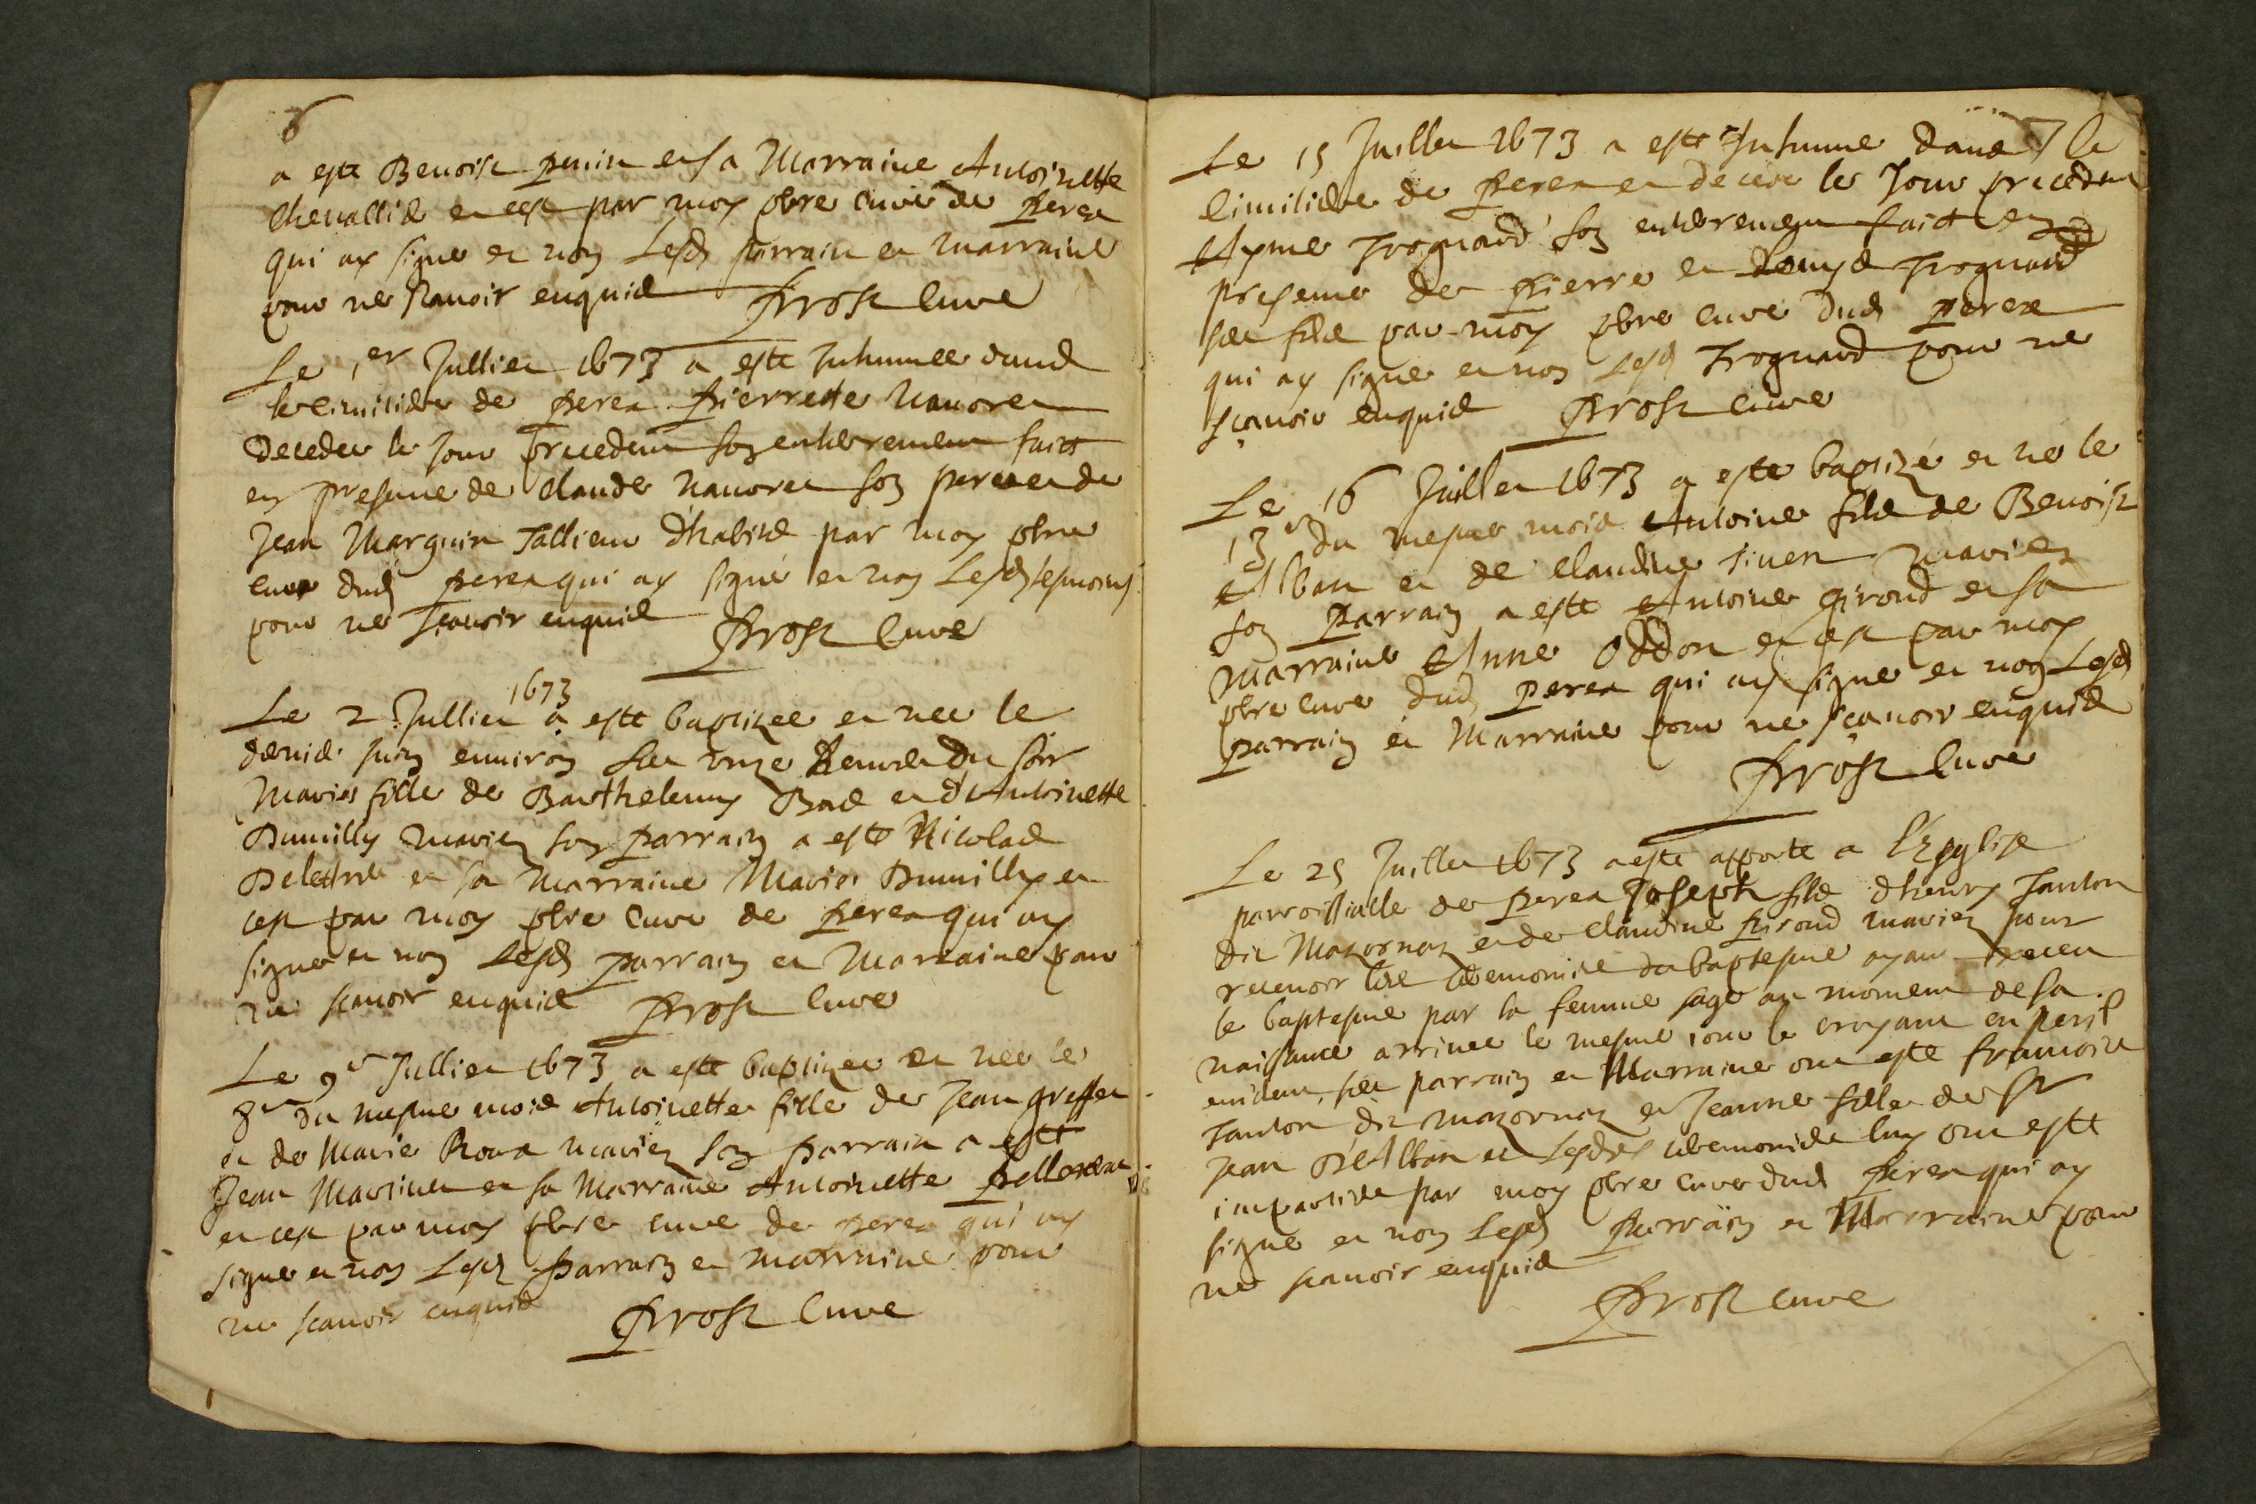 6
a esté Benoist perrin et sa Marraine Antoinette
Chevallier et cest par moy pbre curé de perex
qui ay signé et non lesd parrain et marraine
pour ne scavoir enquis Prost curé
Le 1er Jullier 1673 a esté Inhumée dans
le cimitiere de perex pierrette
decedee le jour precedent son enterrement faict
en presence de Claude son pere et de
Jean Marguin Tallieur d'habits par moy pbre
curé dud perex qui ay signé et non lesd tesmoins
pour ne scavoir enquis Prost curé
Le 2 Jullier 1673 a esté baptizee et nee le
dernier juin environ sur onze heures du soir
Marie fille de Barthelemy et d'Antoinette
Dumilly mariez son parrain a esté Nicolas
et sa Marraine Marie Dumilly et
cest par moy pbre curé de perex qui ay
signé et non lesd parrain et Marraine pour
ne scavoir enquis Prost curé
Le 9e Jullier 1673 a esté baptizee et nee le
8e du mesme mois Antoinette fille de Jean
et de Marie Roux mariez son parrain a esté
Jean et sa Marraine Antoinette
et cest par moy pbre curé de perex qui ay
signé et non lesd parrain et marraine pour
ne scavoir enquis Prost curé
Le 15 Juillet 1673 a esté Inhumé dans le
cimitiere de perex et decedé le Jour precedent
Ayme Trognard son enterrement faict en
presence de pierre et denys Trognard
ses fils par moy pbre curé dud perex
qui ay signé et non lesd Trognard pour ne
scavoir enquis Prost curé
Le 16 Juillet 1673 a esté baptizé et né le
13e du mesme mois Antoine fils de Benoist
Alban et de Claudine mariez
son Parrain a esté Antoine girond et sa
Marraine Anne Oddon et cest par moy
pbre curé dud perex qui ay signé et non lesd
parrain et Marraine pour ne scavoir enquis
Prost curé
Le 25 Juillet 1673 a esté apporté a l'Esglise
parroissialle de perex Joseph fils d'henry Tanton
dit Mazornaz et de Claudine mariez pour
recevoir les ceremonies du baptesme ayant receu
le baptesme par la femme sage au moment de sa
naissance arrivee le mesme jour le croyant en peril
evident, ses parrain et Marraine ont esté francois
Tanton dit mazornaz et Jeanne fille de Sr
Jean D'Alban et lesdes ceremonies luy ont esté
imparties par moy pbre curé dud perex qui ay
signé et non lesd Parrain et Marraine pour
ne scavoir enquis
Prost curé